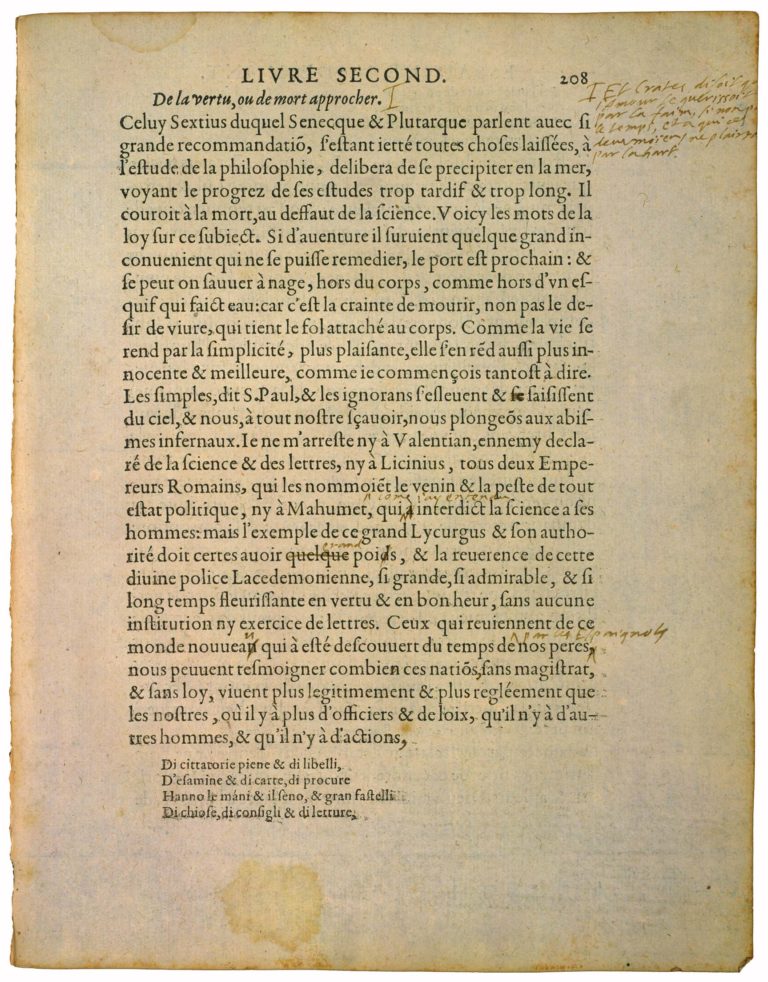 LIVRE SECOND. 208
De la vertu, ou de mort approcher. I
I Et Crates disoit
l'amour se guerissoit
par la faim, sinon
le temps, et a qui ces
deus moiens ne plairoi
par la hart.
Celuy Sextius duquel Senecque & Plutarque parlent auec si
grande recommandatiõ, s'estant ietté toutes choses laissées, à
l'estude de la philosophie, delibera de se precipiter en la mer,
voyant le progrez de ses estudes trop tardif & trop long. Il
couroit à la mort, au deffaut de la science. Voicy les mots de la
loy sur ce subiect. Si d'auenture il suruient quelque grand in-
conuenient qui ne se puisse remedier, le port est prochain: &
se peut on sauuer à nage, hors du corps, comme hors d'vn es-
quif qui faict eau: car c'est la crainte de mourir, non pas le de-
sir de viure, qui tient le fol attaché au corps. Comme la vie se
rend par la simplicité, plus plaisante, elle s'en rẽd aussi plus in-
nocente & meilleure, comme ie commençois tantost à dire.
Les simples, dit S. Paul, & les ignorans s'esleuent & se saisissent
du ciel, & nous, à tout nostre sçauoir, nous plongeõs aux abis-
mes infernaux. Ie ne m'arreste ny à Valentian, ennemy decla-
ré de la science & des lettres, ny à Licinius, tous deux Empe-
reurs Romains, qui les nommoiẽt le venin & la peste de tout
estat politique, ny à Mahumet, qui interdict la science a ses
hommes: mais l'exemple de ce grand Lycurgus & son autho-
rité doit certes auoir quelque grand poids, & la reuerence de cette
diuine police Lacedemonienne, si grande, si admirable, & si
long temps fleurissante en vertu & en bon heur, sans aucune
institution ny exercice de lettres. Ceux qui reuiennent de ce
monde nouueau qui à esté descouuert du temps de nos peres, par les Espaignols
nous peuuent tesmoigner combien ces natiõs, sans magistrat,
& sans loy, viuent plus legitimement & plus regléement que
les nostres, où il y à plus d'officiers & de loix, qu'il n'y à d'au-
tres hommes, & qu'il n'y à d'actions,
Di cittatorie piene & di libelli,
D'esamine & di carte, di procure
Hanno le máni & il seno, & gran fastelli
Di chiose, di consigli & di letture,